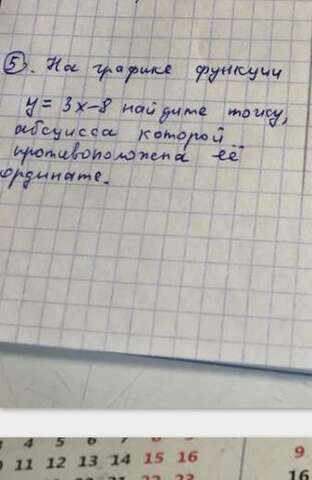 5. На графике функции
y = 3x-8 найдите точку,
абсцисса которой
противоположна её
ординате.
4 5 6 7 8 9
11 12 13 14 15 16
9
16